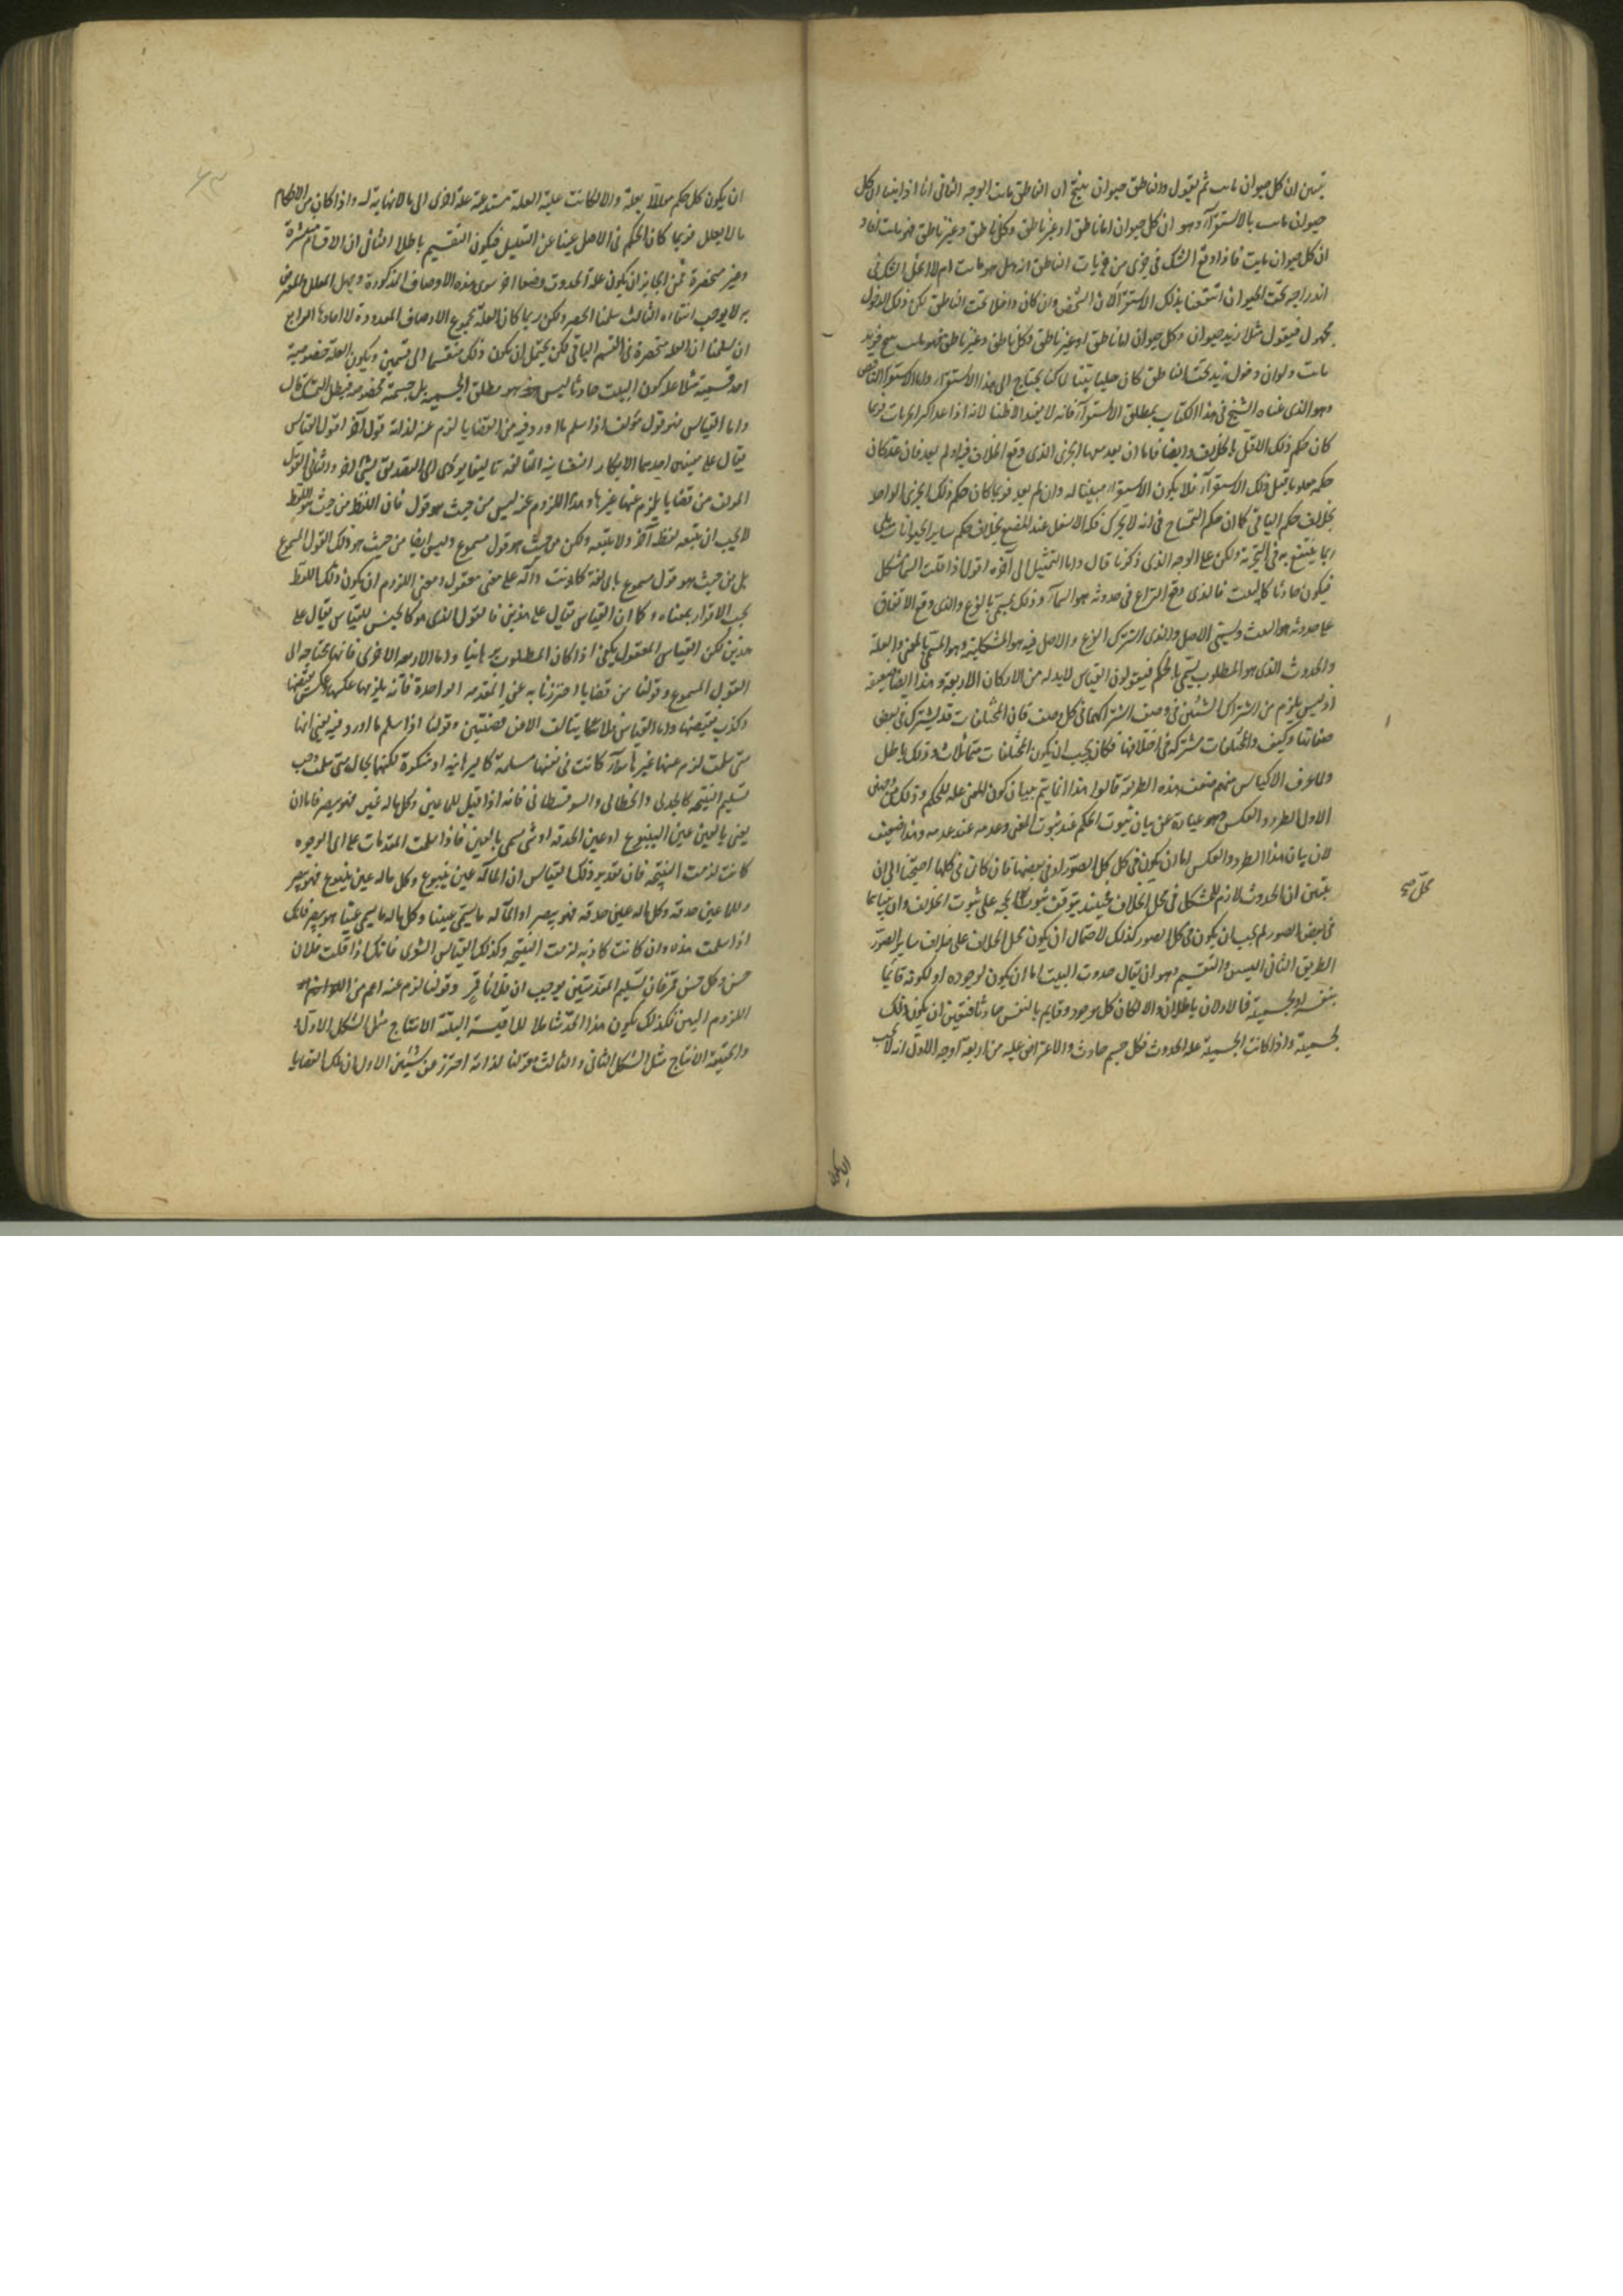 تبين ان كل حيوان مايت ثم يقول والناطق حيوان ينتج ان الناطق مايت الوجه الثانى انا اذا بينا ان كل
حيوان مايت بالاستقرآء وهو ان كل حيوان اما ناطق او غير ناطق وكل ناطق وغير ناطق فهو مايت
ان كل حيوان مايت فاذا وقع الشك فى جزئى من جزئيات الناطق انه هل هو مايت ام لا
اندراجه تحت الحيوان انتفعنا بذلك الاستقرآء لان الشخص وان كان داخلا تحت الناطق لكن ذلك الدخول
مجهول فيقول مثلا زيد حيوان وكل حيوان اما ناطق او غير ناطق وكل ناطق وغير ناطق فهو مايت
مايت ولو ان دخول زيد تحت الناطق كان جليا بينا لما كنا يحتاج الى هذا الاستقرآء واما الاستقرآء الناقص
وهو الذى عناه الشيخ فى هذا الكتاب بمطلق الاستقرآء فانه لا يفيد لانه اذا عدا اكثر الجزيات فربما
كان حكم ذلك الاقل بالخلاف وايضا فاما ان يعد الجزئى الذى وقع الخلاف فيه او لم يعد فان عد كان
حكمه معلوما قبل ذلك الاستقرآء فلا يكون الاستقرآء مبينا له وان لم يعد فربما كان حكم ذلك الجزئى الواحد
بخلاف حكم الباقى كما ان حكم التمساح فى انه لا يحرك فكه الاسفل عند المضغ بخلاف حكم ساير الحيوانات بلى
ربما ينتفع به فى التجربة ولكن على الوجه الذى ذكرنا قال واما التمثيل الى آخره اقول اذا قلت السمآء مشكل
فيكون حادثا كالبيت فالذى وقع النزاع فى حدوثه هو السمآء وذلك يسمى بالفرع والذى وقع الاتفاق
على حدوثه هو البيت ويسمى الاصل والذى اشترك الفرع والاصل فيه هو المشكلية وهو المسمى بالمعنى والعلة
والحدوث الذى هو المطلوب يسمى بالحكم فيقولون القياس لابد له من الاركان الاربعة وهذا ايضا ضعيف
اذ ليس يلزم من اشتراك الشيئين فى وصف اشتراكهما فى كل وصف فان المختلفات قد يشترك فى بعض
صفاتها وكيف والمختلفات مشتركة فى اختلافها فكان يجب ان يكون المختلفات متماثلات وذلك باطل
ولما عرف الاكياس منهم ضعف هذه الطريقة قالوا هذا انما يتم ببيان كون المعنى علة للحكم وذلك من وجهين
الاول الطرد والعكس وهو عبارة عن بيان ثبوت الحكم عند ثبوت المعنى وعدمه عند عدمه وهذا ضعيف
لان بيان هذا الطرد والعكس اما ان يكون فى كل الصور او فى بعضها فان كان فى كلها احتيج الى ان
يتبين ان الحدوث لازم للشكل فى محل الخلاف فحينئذ يتوقف ثبوت الحجة على ثبوت الخلاف وان
فى بعض الصور لم يجب ان يكون فى كل الصور كذلك لاحتمال ان يكون محل الخلاف على خلاف ساير الصور
الطريق الثانى السبر والتقسيم وهو ان يقال حدوث البيت اما ان يكون لوجوده او لكونه قايما
بنفسه او لجسمية فالاولان باطلان والا لكان كل موجود وقايم بالنفس حادثا فتعين ان يكون ذلك
لجسمية واذا كانت الجسمية علة الحدوث فكل جسم حادث والاعتراض عليه من اربعة اوجه الاول انه لا يجب
محل صح
ان يكون
ان يكون كل حكم معللا بعلة والا لكانت علية العلة مستدعية علة اخرى الى ما لا نهاية له واذا كان من الاحكام
ما لا يعلل فربما كان الحكم فى الاصل غنيا عن التعليل فيكون التقسيم باطلا الثانى ان الاقسام منتشرة
وغير منحصرة فمن الجايز ان يكون علة الحدوث وصفا آخر سوى هذه الاوصاف المذكورة
به لا يوجب انتفاءه الثالث سلمنا الحصر ولكن ربما كان العلة مجموع الاوصاف المعدودة لا احادها الرابع
ان سلمنا ان العلة منحصرة فى القسم الباقى لكن يحتمل ان يكون ذلك منقسما الى قسمين ويكون العلة خصوصية
احد قسميه مثلا علة كون البيت حادثا ليس هو مطلق الجسمية بل جسمية مخصوصة فبطل قال
واما القياس فهو قول مؤلف اذا سلم ما اورد فيه من القضايا لزم عنه لذاته قول آخر اقول القياس
يقال على معنيين احدهما الافكار النفسانية المتألفة تأليفا يؤدى الى التصديق بشئ آخر والثانى القول
المولف من قضايا يلزم عنها غيرها وهذا اللزوم عنه ليس من حيث هو قول فان اللفظ من حيث هو لفظ
لا يجب ان يتبعه لفظ آخر ولا يتبعه ولكن من حيث هو قول مسموع وليس ايضا من حيث هو ذلك القول المسموع
بل من حيث هو قول مسموع باى لغة كانت دالة على معنى معقول ومعنى اللزوم ان يكون ذلك اللفظ
يجب الاقرار بمعناه وكما ان القياس يقال على هذين فالقول الذى هو كالجنس للقياس يقال على
هذين لكن القياس المعقول يكفى اذا كان المطلوب برهانيا واما الاربعة الاخرى فانها محتاجة الى
القول المسموع وقولنا من قضايا احترزنا به عن المقدمة الواحدة فانه يلزمها عكسها وعكس نقيضها
وكذب نقيضها واما القياس فلا يتألف الا من قضيتين وقولنا اذا سلم ما اورد فيه يعنى انها
متى سلمت لزم عنها غيرها سوآء كانت فى نفسها مسلمة كالبرهانية او منكرة لكنها بحال متى سلمت وجب
تسليم النتيجة كالجدلى والخطابى والسوفسطائى فانه اذا قيل للما عين وكل ما له عين فهو يبصر فاما ان
يعنى بالعين عين الينبوع او عين الحدقة او شئ يسمى بالعين فاذا سلمت المقدمات على اى الوجوه
كانت لزمت النتيجة فان تقدير ذلك القياس ان المآء له عين ينبوع وكل ما له عين ينبوع فهو يبصر
وللما عين حدقة وكل ما له عين حدقة فهو يبصر او المآء له ما يسمى عينا وكل ما له ما يسمى عينا هو يبصر فانك
اذا سلمت هذه وان كانت كاذبة لزمت النتيجة وكذلك القياس الشعرى فانك اذا قلت فلان
حسن وكل حسن قمر فان تسليم المقدمتين يوجب ان فلانا قمر وقولنا لزم عنه اعم من
اللزوم البين فكذلك يكون هذا الحد شاملا للاقيسة البينة الانتاج مثل الشكل الاول
والخفية الانتاج مثل الشكل الثانى والثالث وقولنا لذاته احترز من شيئين الاول ان تلك القضايا